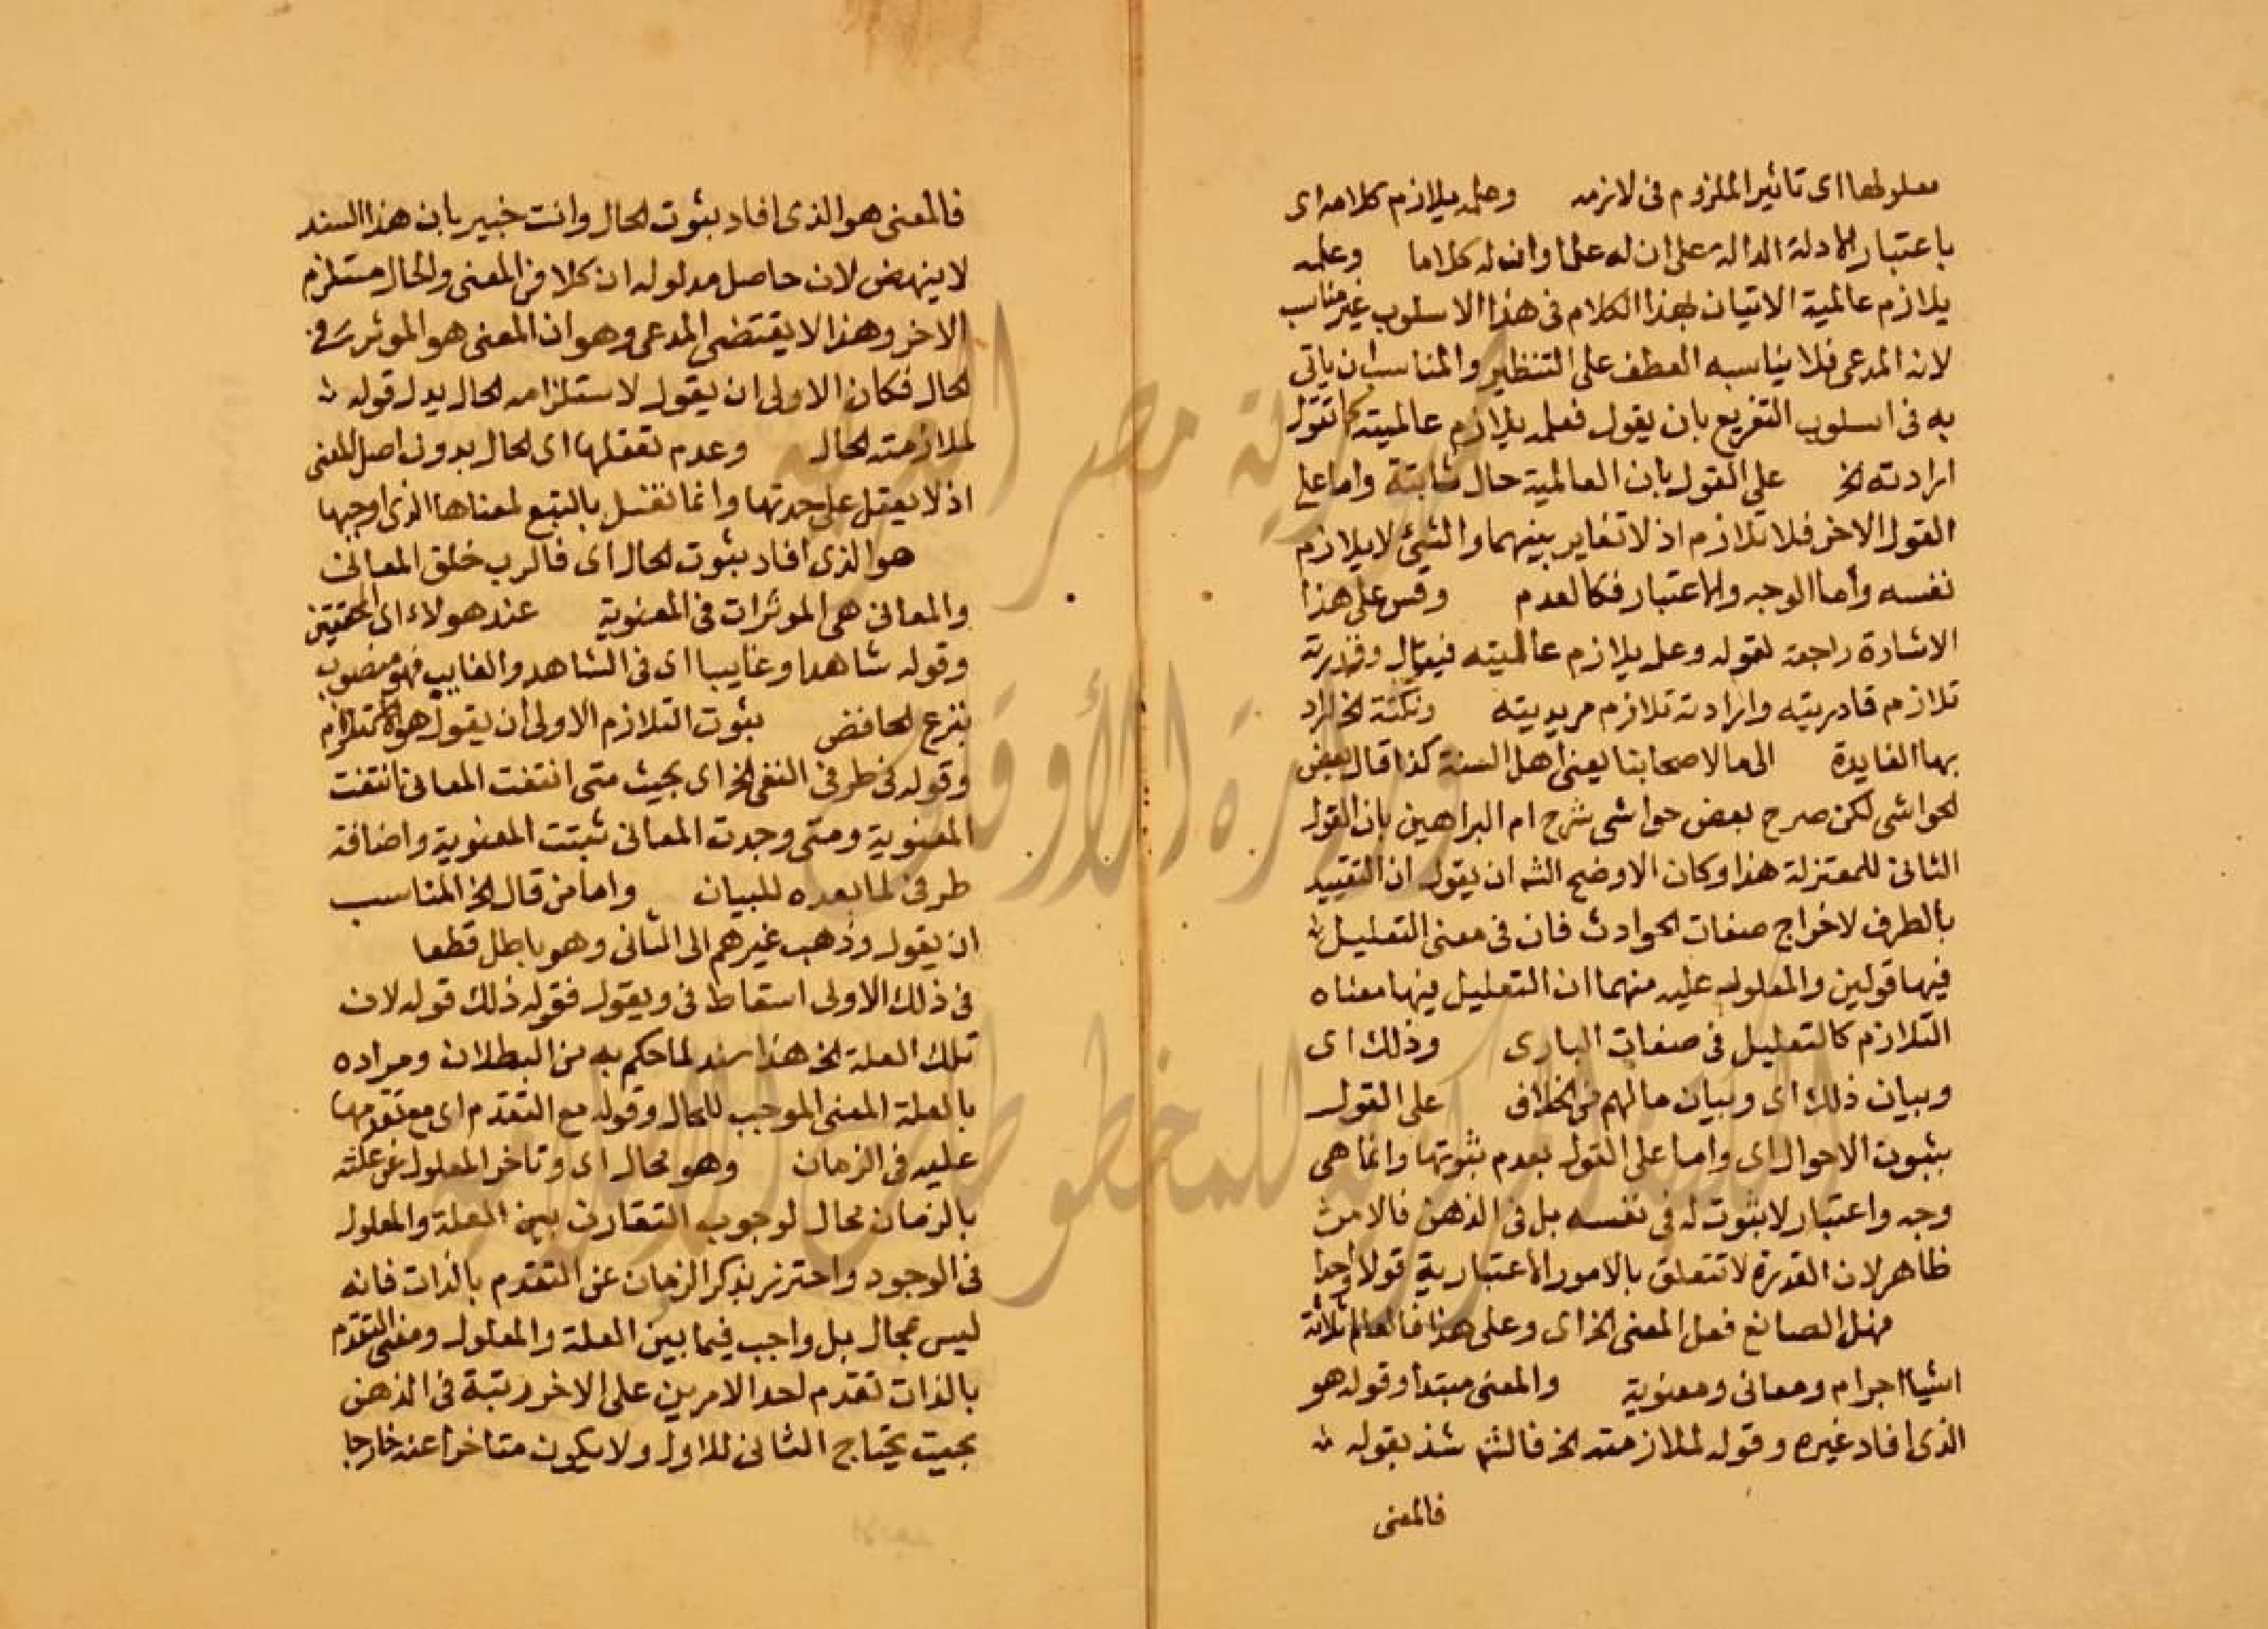 معلولها اى تاثير الملزوم فى لازمه وعلمه يلازم كلامه اى
باعتبار الادلة الدالة على ان له علما وان له كلاما وعلمه
يلازم عالمية الاتيان بهذا الكلام فى هذا الاسلوب غير مناسب
لانه المدعى فلا يناسبه العطف على التنظير والمناسب ان ياتى
به فى اسلوب التفريع بان يقول فعلمه يلازم عالميته كما تقول
ارادته الخ على القول بان العالمية حال ثابتة واما على
القول الاخر فلا تلازم اذ لا تغاير بينهما والشئ لا يلازم
نفسه وأما الوجه والاعتبار فكالعدم وقس على هذا
الاشارة راجعة لقوله وعلمه يلازم عالميته فيقال وقدرته
تلازم قادريته وارادته تلازم مريديته ونكتة الخ المراد
بها الفايدة الى ما لاصحابنا يعنى أهل السنة كذا قال بعض
الحواشى لكن صرح بعض حواشى شرح ام البراهين بان القول
الثانى للمعتزلة هذا وكان الاوضح الشه ان يقول ان التقييد
بالطرف لاخراج صفات الحوادث فان فى معنى التعليل
فيها قولين والمعلول عليه منهما ان التعليل فيها معناه
التلازم كالتعليل فى صفات البارى وذلك اى
وبيان ذلك اى وبيان ما لهم من الخلاف على القول
بثبوت الاحوال اى واما على القول بعدم ثبوتها وانما هى
وجه واعتبار لا ثبوت له فى نفسه بل فى الذهن فالامر
ظاهر لان القدرة لا تتعلق بالامور الاعتبارية قولا واحدا
هل الصانع فعل المعنى الخ اى وعلى هذا فالعالم ثلاثة
اشيا اجرام ومعانى ومعنوية والمعنى مبتدأ وقوله هو
الذى افاد غيره وقوله لملازمته الخ فالشه شذ بقوله
فالمعنى
فالمعنى هو الذى افاد بثوت الحال وانت خبير بان هذا السند
لا ينهض لان حاصل مدلوله ان كلا من المعنى والحال مستلزم
الاخر وهذا لا يقتضى المدعى وهو ان المعنى هو الموثر فى
الحال فكان الاولى ان يقول لاستلزامه الحال بدل قوله
لملازمته الحال وعدم تعقلها اى الحال بدون اصل المعنى
اذ لا يعقل على حدتها وانما تعقل بالتبع لمعناها الذى اوجبها
هو الذى افاد بثوت الحال اى فالرب خلق المعانى
والمعانى هى الموثرات فى المعنوية عند هولاء اى المحققين
وقوله شاهدا وغايبا اى فى الشاهد والغايب فهو منصوب
بنزع الخافض بثوت التلازم الاولى ان يقول هو الاستلزام
وقوله فى طرفى النفى الخ اى بحيث متى انتفت المعانى انتفت
المعنوية ومتى وجدت المعانى ثبتت المعنوية واضافة
طرفى لما بعده للبيان واما من قال الخ المناسب
ان يقول وذهب غيرهم الى الثانى وهو باطل قطعا
فى ذلك الاولى اسقاط فى ويقول فقوله ذلك قوله لان
تلك العلة الخ هذا سند لما حكم به من البطلان ومراده
بالعلة المعنى الموجب للحال وقوله مع التقدم اى مع تقدمها
عليه فى الزمان وهو محال اى وتاخر المعلول عن علته
بالزمان محال لوجوب التقارن بين العلة والمعلول
فى الوجود واحترز بذكر الزمان عن التقدم بالذات فانه
ليس بمحال بل واجب فيما بين العلة والمعلول ومعنى التقدم
بالذات تقدم احد الامرين على الاخر رتبة فى الذهن
بحيث يحتاج الثانى للاول ولا يكون متاخرا عنه خارجا